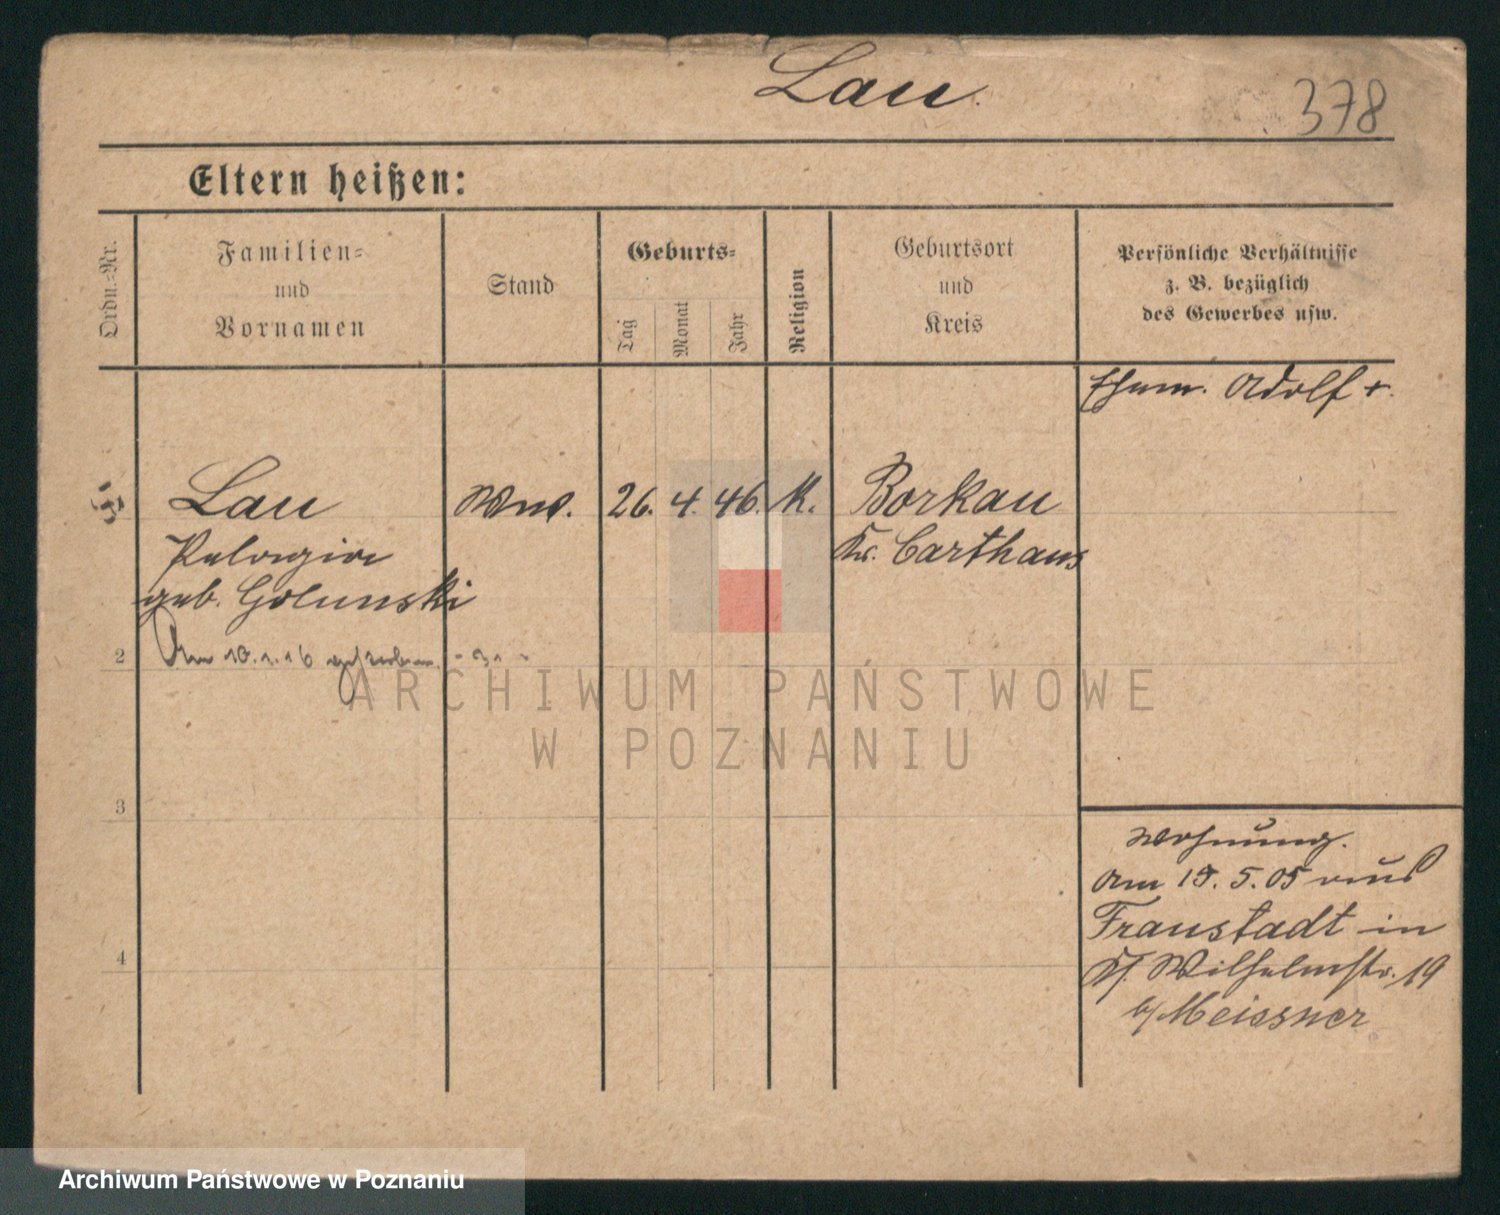 Lau.
378
Eltern heißen:
Ordn.-Nr.
Familien-
und
Vornamen
Stand
Geburts-
Tag
Monat
Jahr
Religion
Geburtsort
und
Kreis
Persönliche Verhältnisse
z. B. bezüglich
des Gewerbes usw.
Ehem. Adolf +.
Lau Wwe. 26. 4. 46. K. Borkau
Pelagia Kr. Carthaus
geb. Golunski
2 Am 10.1.16 gestorben.
ARCHIWUM PAŃSTWOWE
W POZNANIU
3
Wohnung.
Am 15.5.05 aus
Fraustadt in
4
Wilhelmstr. 19
b/Meissner
Archiwum Państwowe w Poznaniu